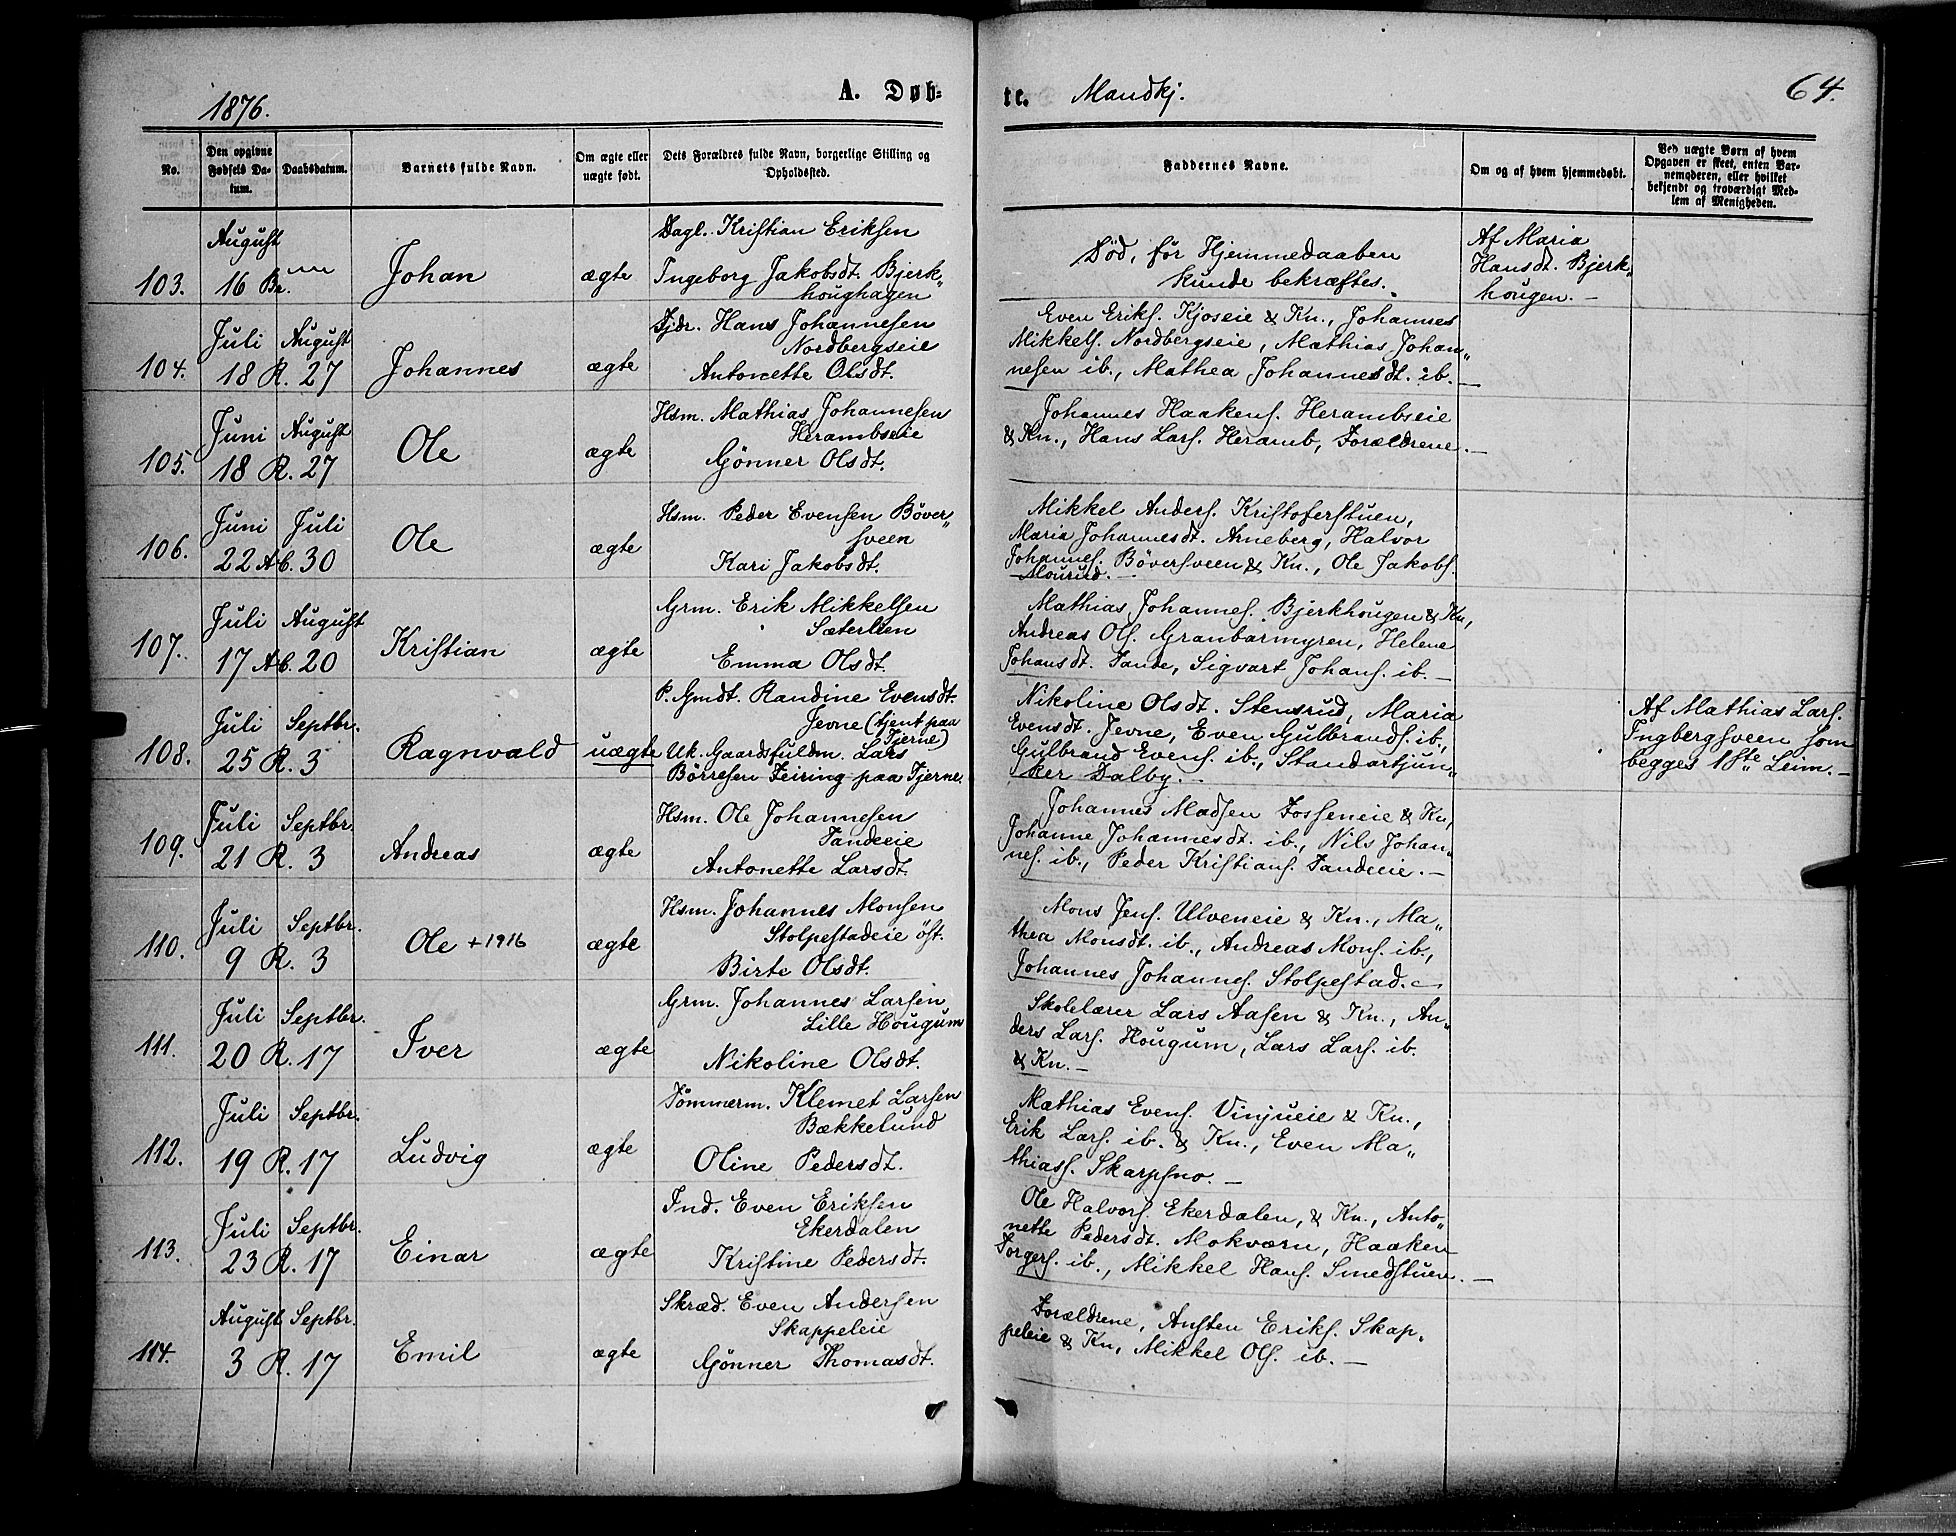 1876.
A. Døb-
te.
Mandkj.
64.
No.
Den opgivne Fødsels Da-
tum.
Daabsdatum.
Barnets fulde Navn.
Om ægte eller
uægte født.
Dets Forældres fulde Navn, borgerlige Stilling og
Opholdssted.
Faddernes Navne.
Om og af hvem hjemmedøbt.
Ved uægte Børn af hvem
Opgaven er skeet, enten Bar-
nemoderen, eller hvilket
bekjendt og troværdigt Med-
lem af Menigheden.
103.
August
16 Br.
Johan
ægte
Dagl. Kristian Eriksen
Ingeborg Jakobsdt. Bjerk„
houghagen
Død, før Hjemmedaaben
kunde bekræftes.
Af Maria
Hansdt. Bjerk„
hougen. –
104.
Juli
18 R.
August
27
Johannes
ægte
Fjdr. Hans Johannesen
Nordbergseie
Antonette Olsdt.
Even Eriks. Kjoseie & Kn., Johannes
Mikkels. Nordbergseie, Mathias Johan„
nesen ib., Mathea Johannesdt. ib. –
105.
Juni
18 R.
August
27
Ole
ægte
Hsm. Mathias Johannesen
Herambseie
Gønner Olsdt.
Johannes Haakens. Herambseie
& Kn., Hans Lars. Heramb, Forældrene. –
106.
Juni
22 Ab.
Juli
30
Ole
ægte
Hsm. Peder Evensen Bøver„
sveen
Kari Jakobsdt.
Mikkel Anders. Kristoferstuen,
Maria Johannesdt. Arneberg, Halvor
Johannes. Bøversveen & Kn., Ole Jakobs.
Mourud. –
107.
Juli
17 Ab.
August
20
Kristian
ægte
Grm. Erik Mikkelsen
Sæterlien
Emma Olsdt.
Mathias Johannes. Bjerkhougen & Kn,
Andreas Ols. Granbarmyren, Helene
Johansdt. Tande, Sigvart Johans. ib. –
108.
Juli
25 R.
Septbr.
3
Ragnvald
uægte
P. Gmdt. Randine Evensdt.
Jevne (tjent paa
Tjerne)
Uk. Gaardsfuldm. Lars
Børresen Feiring paa Tjerne.
Nikoline Olsdt. Stensrud, Maria
Evensdt. Jevne, Even Gulbrands. ib.,
Gulbrand Evens. ib., Standartjun„
ker Dalby. –
Af Mathias Lars.
Ingbergsveen som
begges 1ste Leierm. –
109.
Juli
21 R.
Septbr.
3
Andreas
ægte
Hsm. Ole Johannesen
Tandeeie
Antonette Larsdt.
Johannes Madsen Fosseneie & Kn,
Johanne Johannesdt. ib., Nils Johan„
nes. ib., Peder Kristians. Tandeeie. –
110.
Juli
9 R.
Septbr.
3
Ole +1916
ægte
Hsm. Johannes Monsen
Stolpestadeie øst.
Birte Olsdt.
Mons Jens. Ulveneie & Kn., Ma„
thea Monsdt. ib., Andreas Mons. ib.,
Johannes Johannes. Stolpestad. –
111.
Juli
20 R.
Septbr.
17
Iver
ægte
Grm. Johannes Larsen
Lille Hougum
Nikoline Olsdt.
Skolelærer Lars Aasen & Kn., An„
ders Lars. Hougum, Lars Lars. ib.
& Kn. –
112.
Juli
19 R.
Septbr.
17
Ludvig
ægte
Tømmerm. Klemet Larsen
Bækkelund
Oline Pedersdt.
Mathias Evens. Vinjueie & Kn.,
Erik Lars. ib. & Kn., Even Ma„
thiass. Skarpsno. –
113.
Juli
23 R.
Septbr.
17
Einar
ægte
Ind. Even Eriksen
Ekerdalen
Kristine Pedersdt.
Ole Halvors. Ekerdalen, & Kn., Anto„
nette Pedersdt. Mokværn, Haaken
Torgers. ib., Mikkel Hans. Smedstuen. –
114.
August
3 R.
Septbr.
17
Emil
ægte
Skræd. Even Andersen
Skappeleie
Gønner Thomasdt.
Forældrene, Austen Eriks. Skap„
peleie & Kn, Mikkel Ols. ib. –